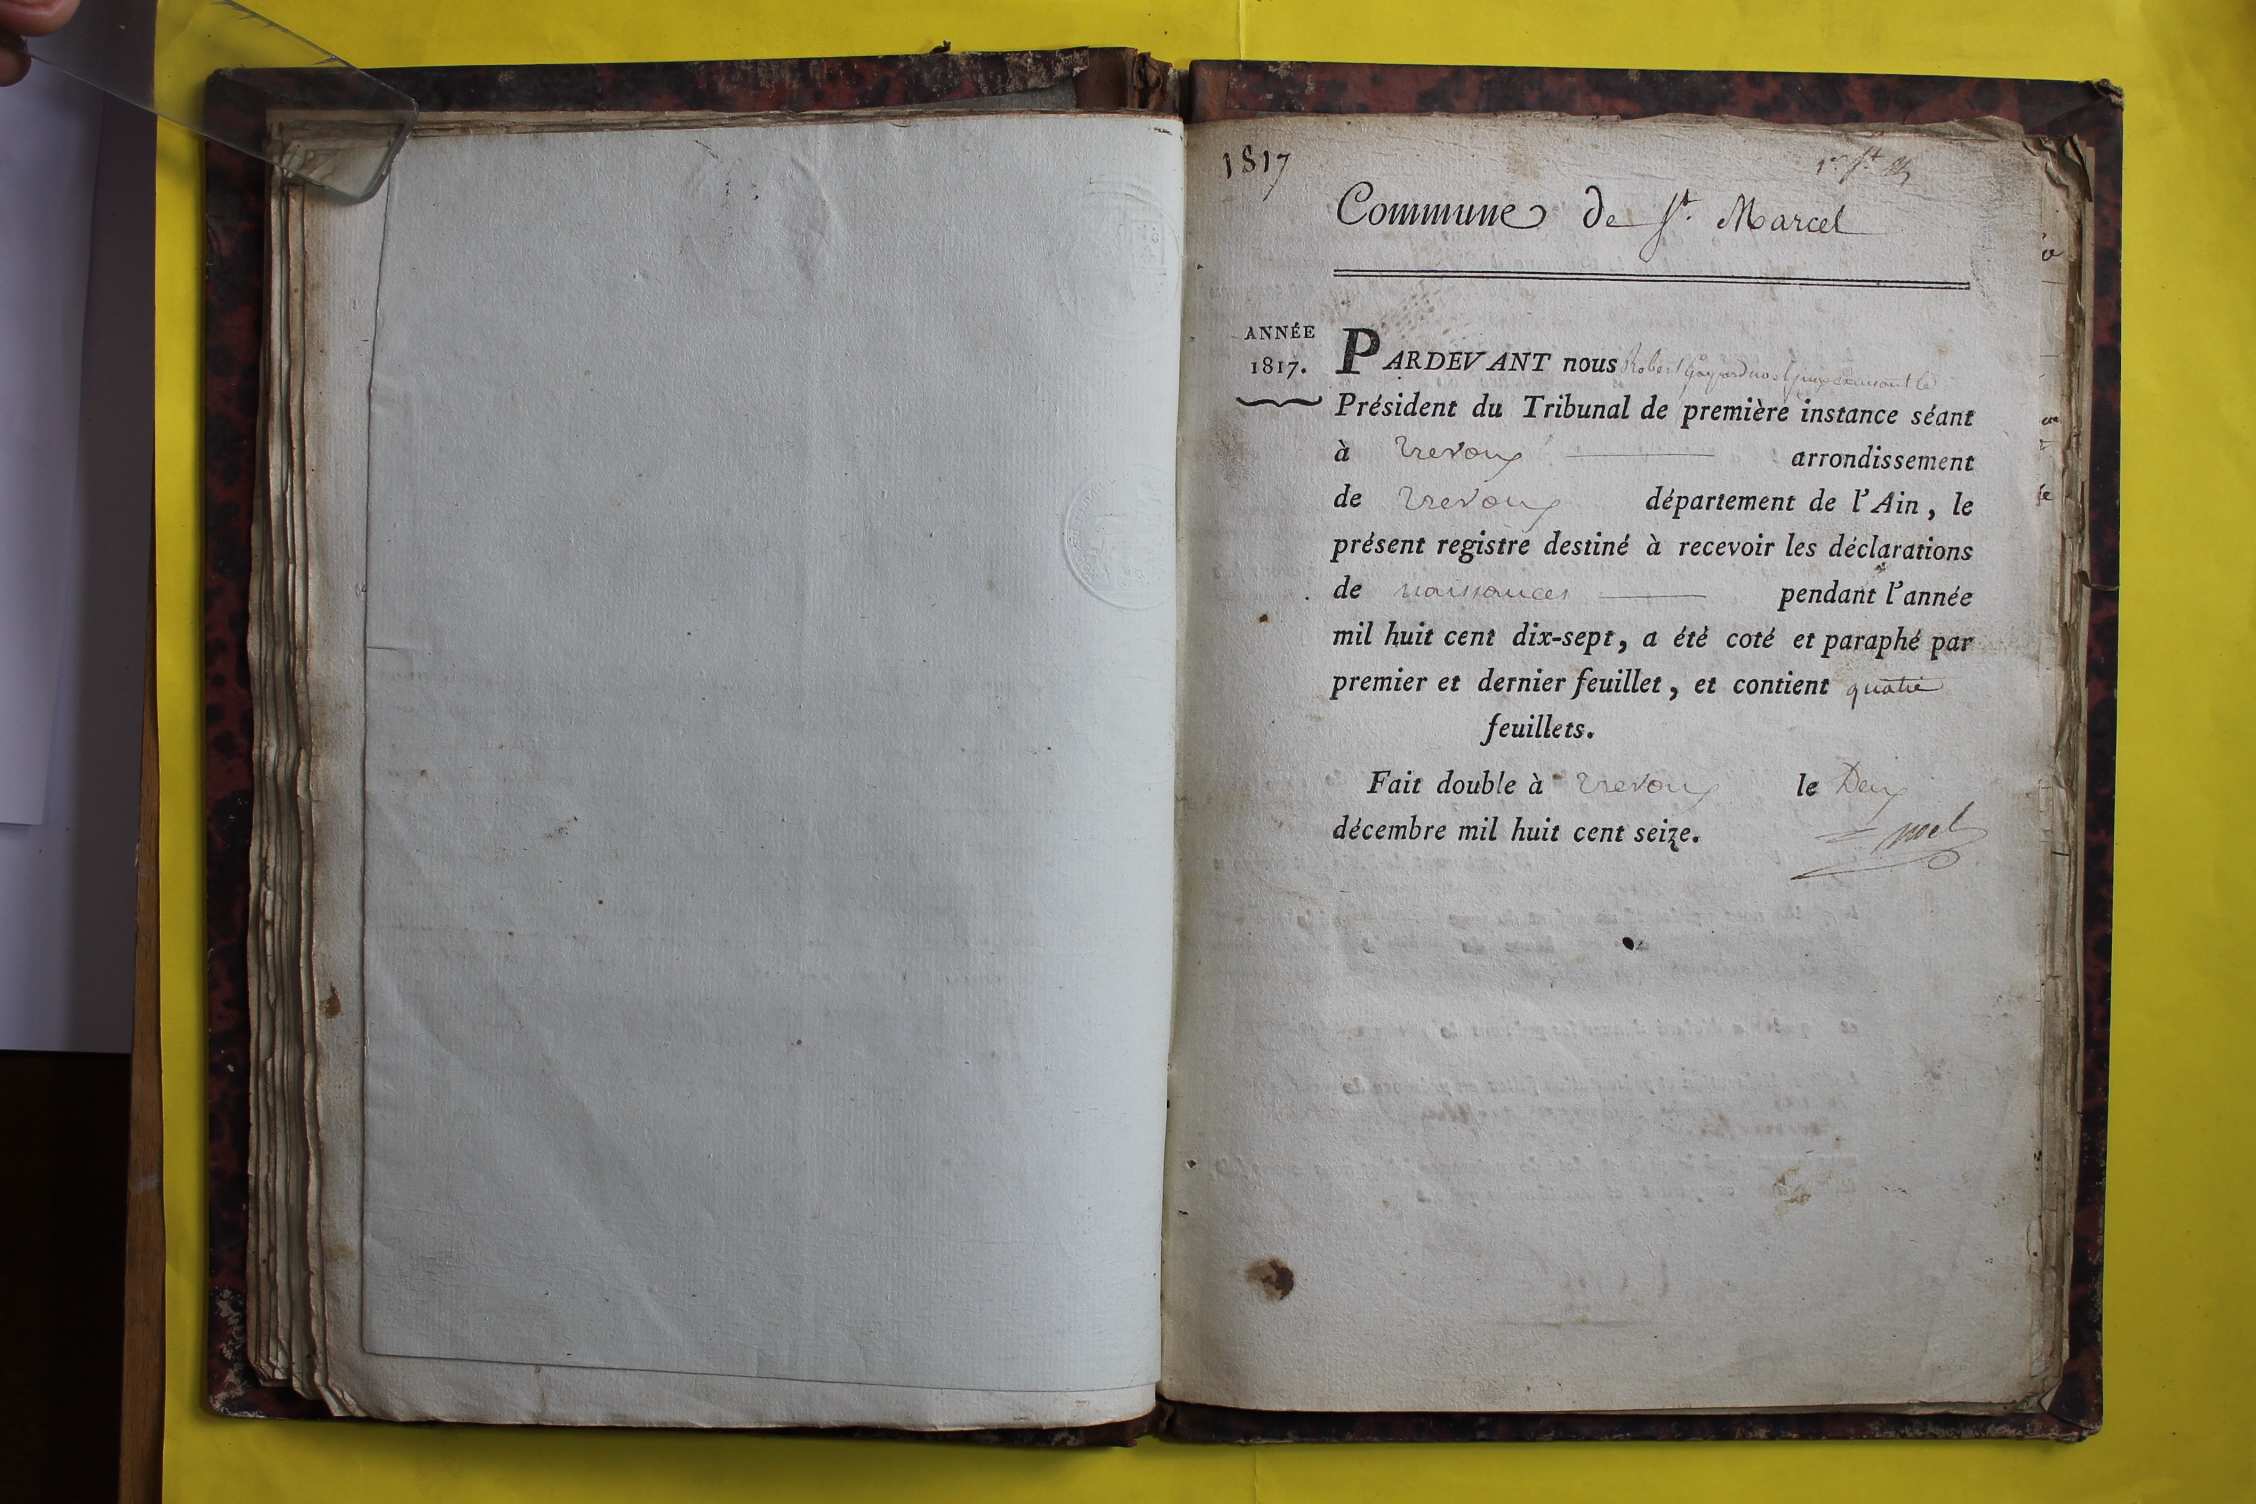 1817
Commune de St. Marcel
ANNÉE
1817.
PARDEVANT nous Robert Gaspard noel juge exerçant le
Président du Tribunal de première instance séant
à Trevoux arrondissement
de Trevoux département de l'Ain, le
présent registre destiné à recevoir les déclarations
de naissances pendant l'année
mil huit cent dix-sept, a été coté et paraphé par
premier et dernier feuillet, et contient quatre
feuillets.
Fait double à Trevoux le Deux
décembre mil huit cent seize.
noel